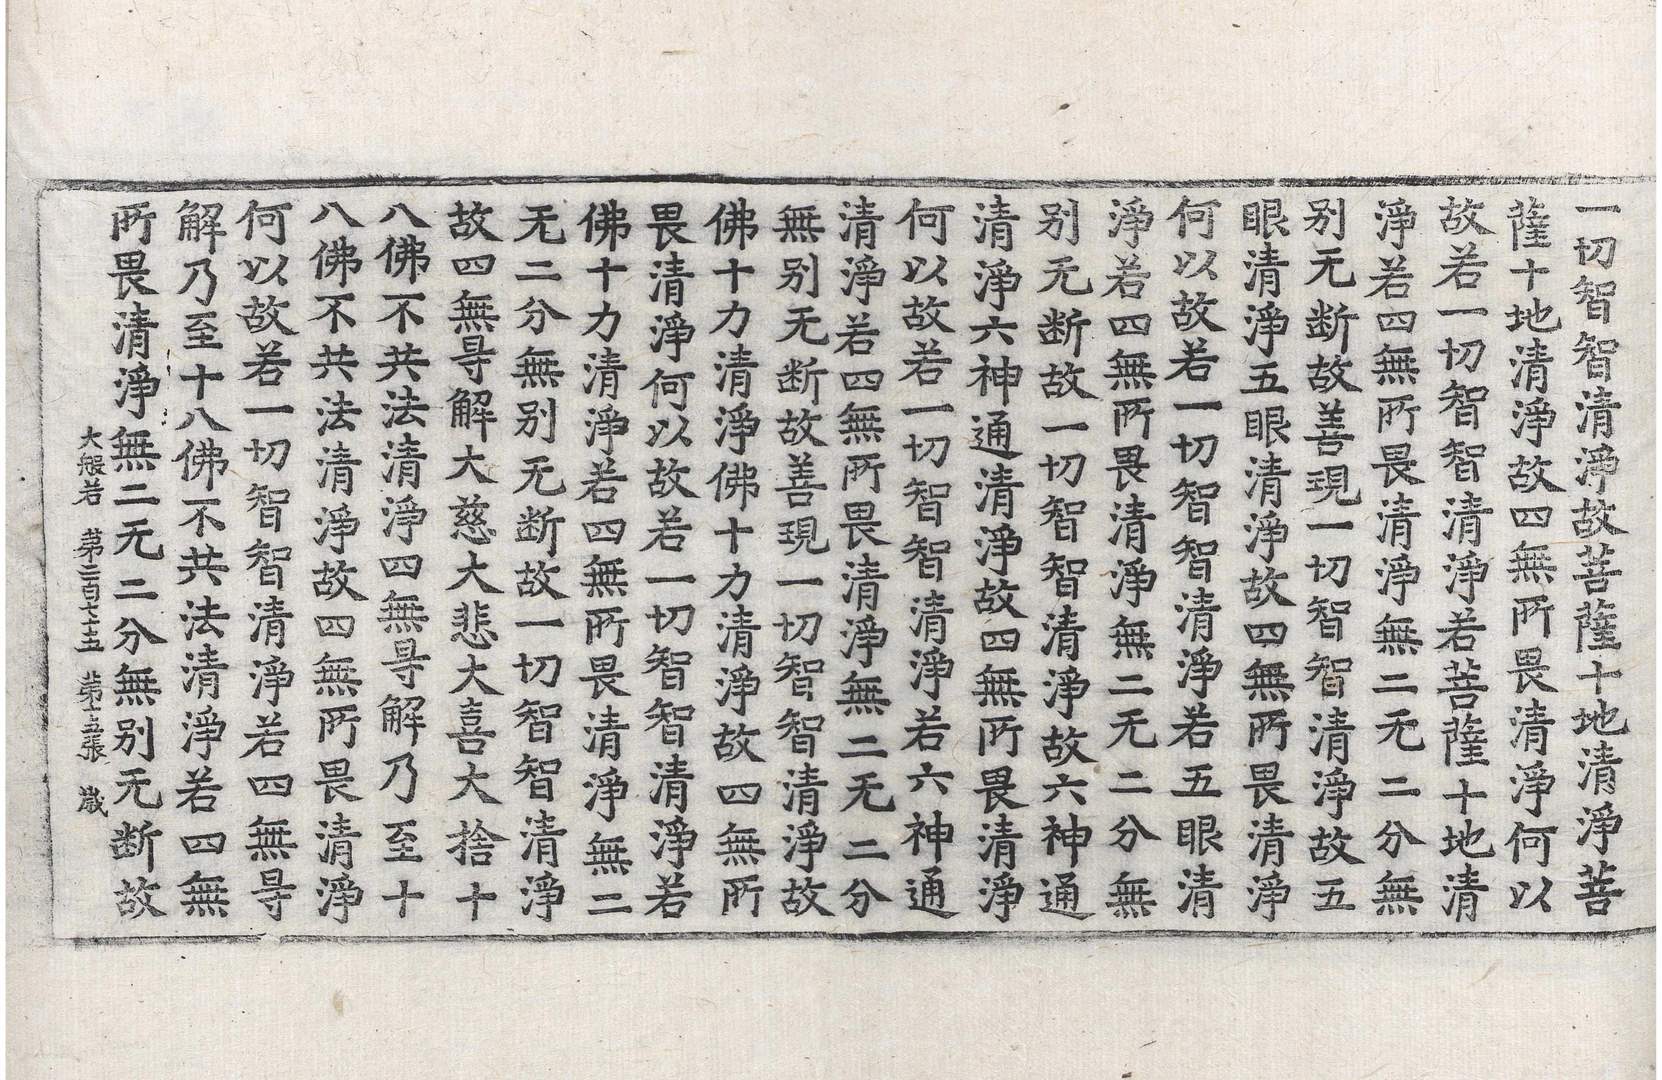 一切智智清淨故菩薩十地清淨菩
薩十地清淨故四無所畏清淨何以
故若一切智智清淨若菩薩十地清
淨若四無所畏清淨無二无二分無
别无断故善現一切智智清淨故五
眼清淨五眼清淨故四無所畏清淨
何以故若一切智智清淨若五眼清
淨若四無所畏清淨無二无二分無
别无断故一切智智清淨故六神通
清淨六神通清淨故四無所畏清淨
何以故若一切智智清淨若六神通
清淨若四無所畏清淨無二无二分
無别无断故善現一切智智清淨故
佛十力清淨佛十力清淨故四無所
畏清淨何以故若一切智智清淨若
佛十力清淨若四無所畏清淨無二
无二分無别无断故一切智智清淨
故四無㝵解大慈大悲大喜大捨十
八佛不共法清淨四無㝵解乃至十
八佛不共法清淨故四無所畏清淨
何以故若一切智智清淨若四無㝵
解乃至十八佛不共法清淨若四無
所畏清淨無二无二分無别无断故
大般若 第二百七十五 第十五張 歲